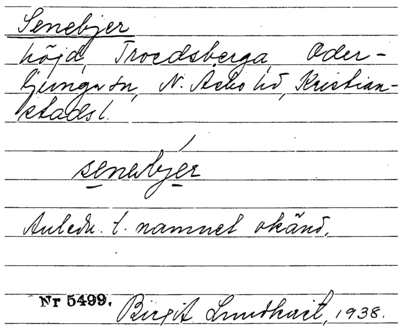 Senebjer
höjd, Troedsberga, Oder-
ljunga sn, N. Åsbo hd, Kristian-
stads l.
senebjér
Anledn. t. namnet okänd.
Nr 5499. Birgit Lundkvist, 1938.